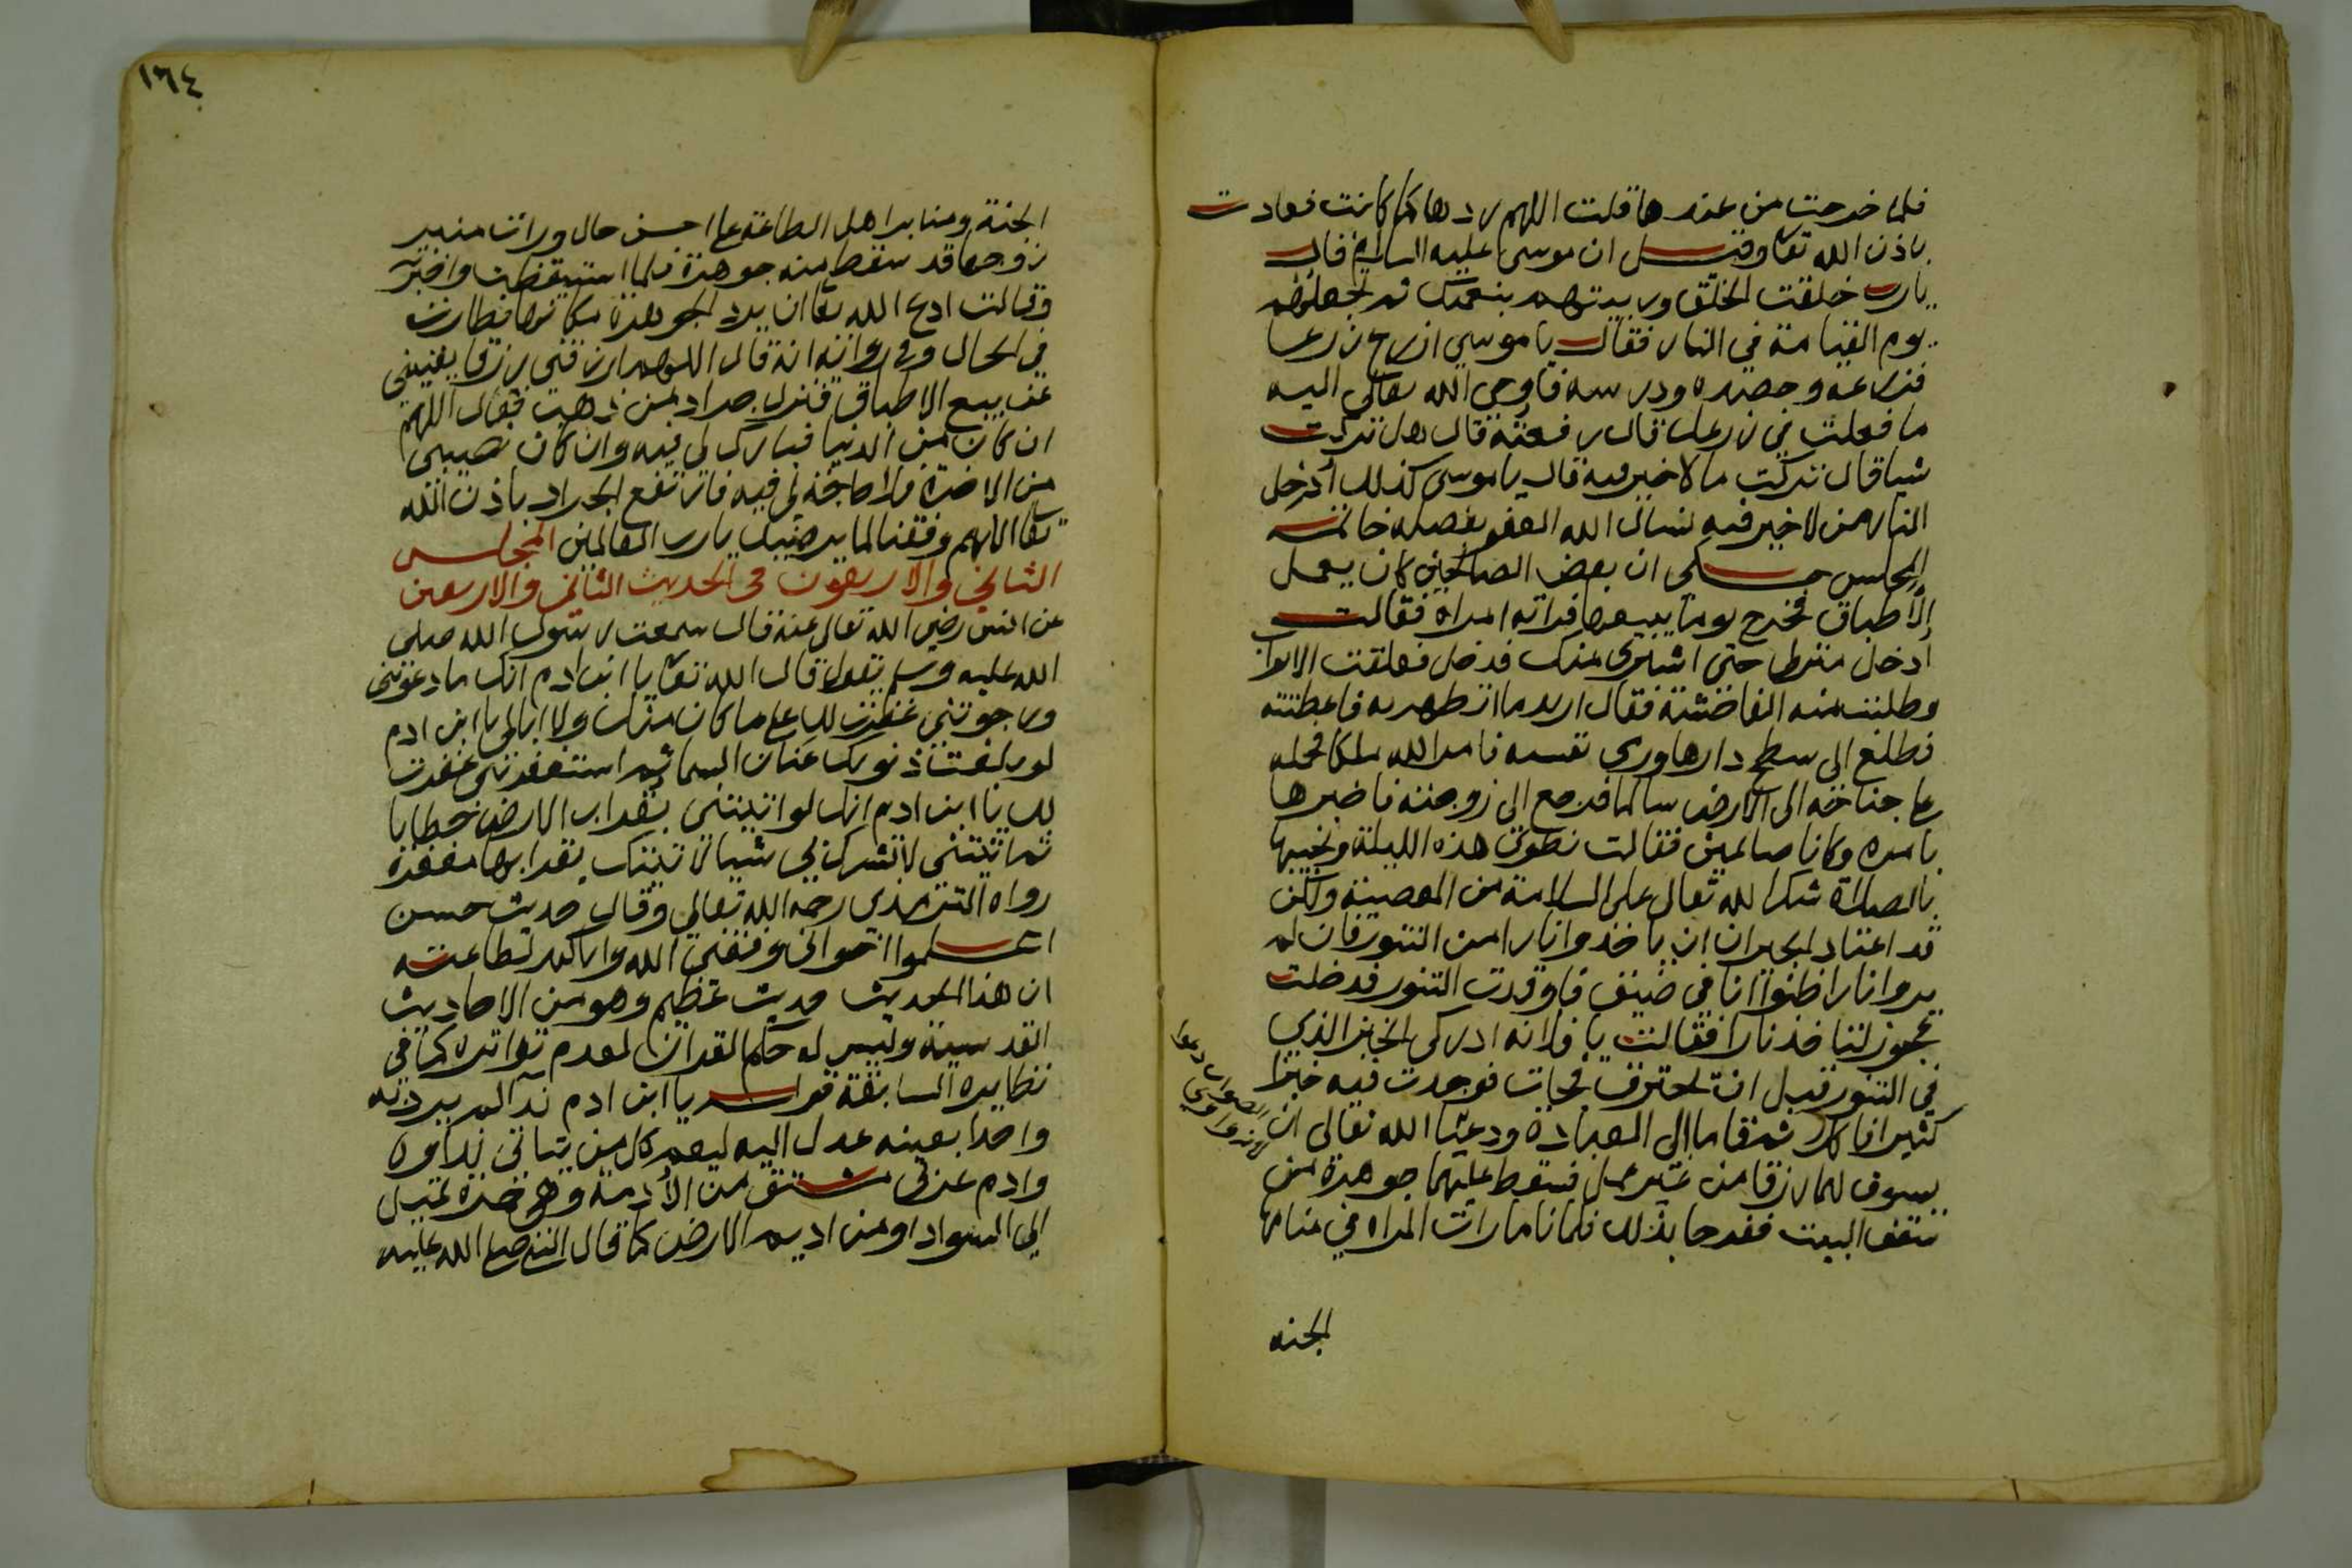 فلما خرجت من عندها قلت اللهم ردها كما كانت فعادت
باذن الله تعا وقيل ان موسى عليه السلام قال
يارب خلقت الخلق وربيتهم بنعمتك ثم تجعلهم
يوم القيامة في النار فقال يا موسي ازرع زرعا
فزرعه وحصده ودرسه فاوحى الله تعالى اليه
ما فعلت في زرعك قال رفعته قال هل تركت
شيا قال تركت ما لا خير فيه قال يا موسى كذلك أدخل
النار من لا خير فيه نسال الله العفو بفضله خاتمة
المجلس حكي ان بعض الصالحين كان يعمل
الأطباق فخرج يوما يبيعها فراته امراة فقالت
أدخل حتى اشتري منك فدخل فغلقت الابواب
وطلبت منه الفاحشة فقال اريد ما اتطهر به فاعطته
فطلع الى سطح دارها ورمى نفسه فامر الله ملكا فحمله
على جناحه الى الارض سالما فرجع الى زوجته فاخبرها
بامره وكانا صائمين فقالت نطوي هذه الليلة ونحييها
بالصلاة شكرا لله تعالى على السلامة من المعصية ولكن
قد اعتاد الجيران ان ياخذوا نارا من التنور فان لم
يروا نارا ظنوا انا في ضيق فاوقدت التنور فدخلت
عجوز لتاخذ نارا فقالت يا فلانه ادركي الخبز الذي
في التنور قبل ان يحترق فجات فوجدت فيه خبزا
كثيرا فاكلا ثم قاما الى العبادة ودعيا الله تعالى ان
الصواب دعوا
يسوق لهما رزقا من غير عمل فسقط عليهما جوهرة من
سقف البيت ففرحا بذلك فلما ناما رات المراه في منامها
الجنه
١٦٤
الجنة ومنابر اهل الطاعة على احسن حال ورات منبر
زوجها قد سقط منه جوهرة فلما استيقظت واخبرته
وقالت ادع الله تعا ان يرد الجوهرة مكانها فطارت
في الحال وفي رواية انه قال اللهم ارزقني رزقا يغنيني
عن بيع الاطباق فنزل جراد من ذهب فقال اللهم
ان كان من الدنيا فبارك لي فيه وان كان نصيبي
من الاخرة فلا حاجة لي فيه فارتفع الجراد باذن الله
تعا اللهم وفقنا لما يرضيك يارب العالمين المجلس
الثاني والاربعون في الحديث الثاني والاربعين
عن انس رضي الله تعالى عنه قال سمعت رسول الله صلى
الله عليه وسلم يقول قال الله تعا يا ابن ادم انك ما دعوتني
ورجوتني غفرت لك على ما كان منك ولا ابالي يا ابن ادم
لو بلغت ذنوبك عنان السما ثم استغفرتني غفرت
لك يا ابن ادم انك لو اتيتني بقراب الارض خطايا
ثم اتيتني لا تشرك بي شيا لاتيتك بقرابها مغفرة
رواه الترمذي رحمه الله تعالى وقال حديث حسن
اعلموا اخواني وفقني الله واياكم لطاعته
ان هذا الحديث حديث عظيم وهو من الاحاديث
القدسية وليس له حكم القران لعدم تواتره كما في
نظايره السابقة قوله يا ابن ادم ندآ لم يرد به
واحدا بعينه عدل اليه ليعم كل من يتاتى نداوه
وادم عربي مشتق من الأدمة وهي حمرة تميل
الى السواد او من اديم الارض كما قال النبي صلى الله عليه